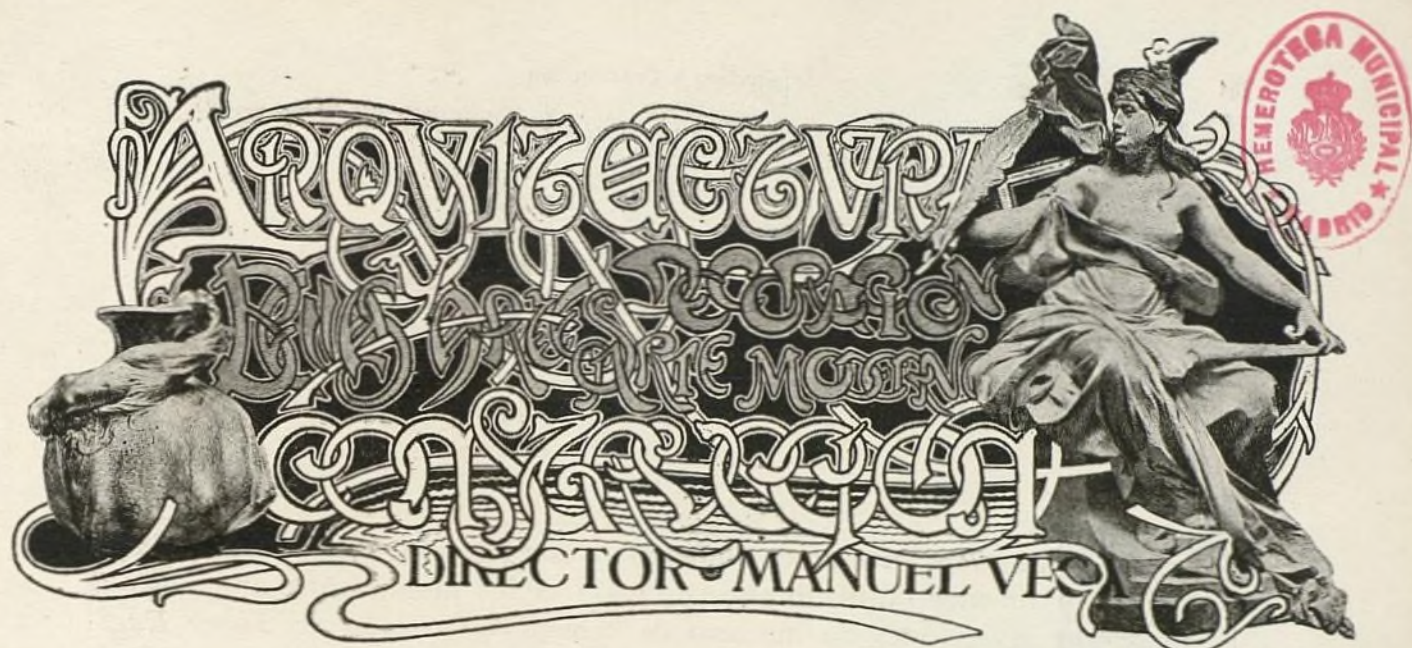 ARQVITECTVRA
BELLAS ARTES DECORACION
ARTE MODERNO
CONSTRVCCION
DIRECTOR • MANUEL VEGA
HEMEROTECA MUNICIPAL ★ MADRID